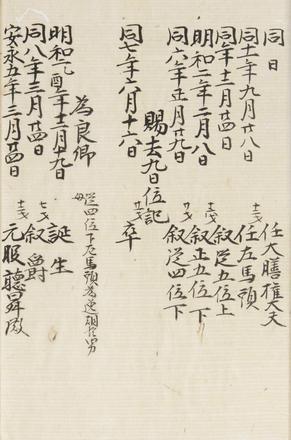 同日 任大膳権大夫
同十一年九月廿八日 十三才 任左馬頭
同年十二月廿四日 叙従五位上
明和二年二月八日 叙正五位下
同六年正月廿九日 叙従四位下
賜去九日位記
同七年六月十六日 卒
為良卿
従四位下左馬頭為逸朝臣男
母
明和二乙酉年十二月十九日 誕生
同八年三月廿四日 七才 叙爵
安永五年三月廿四日 十二才 元服聴昇殿